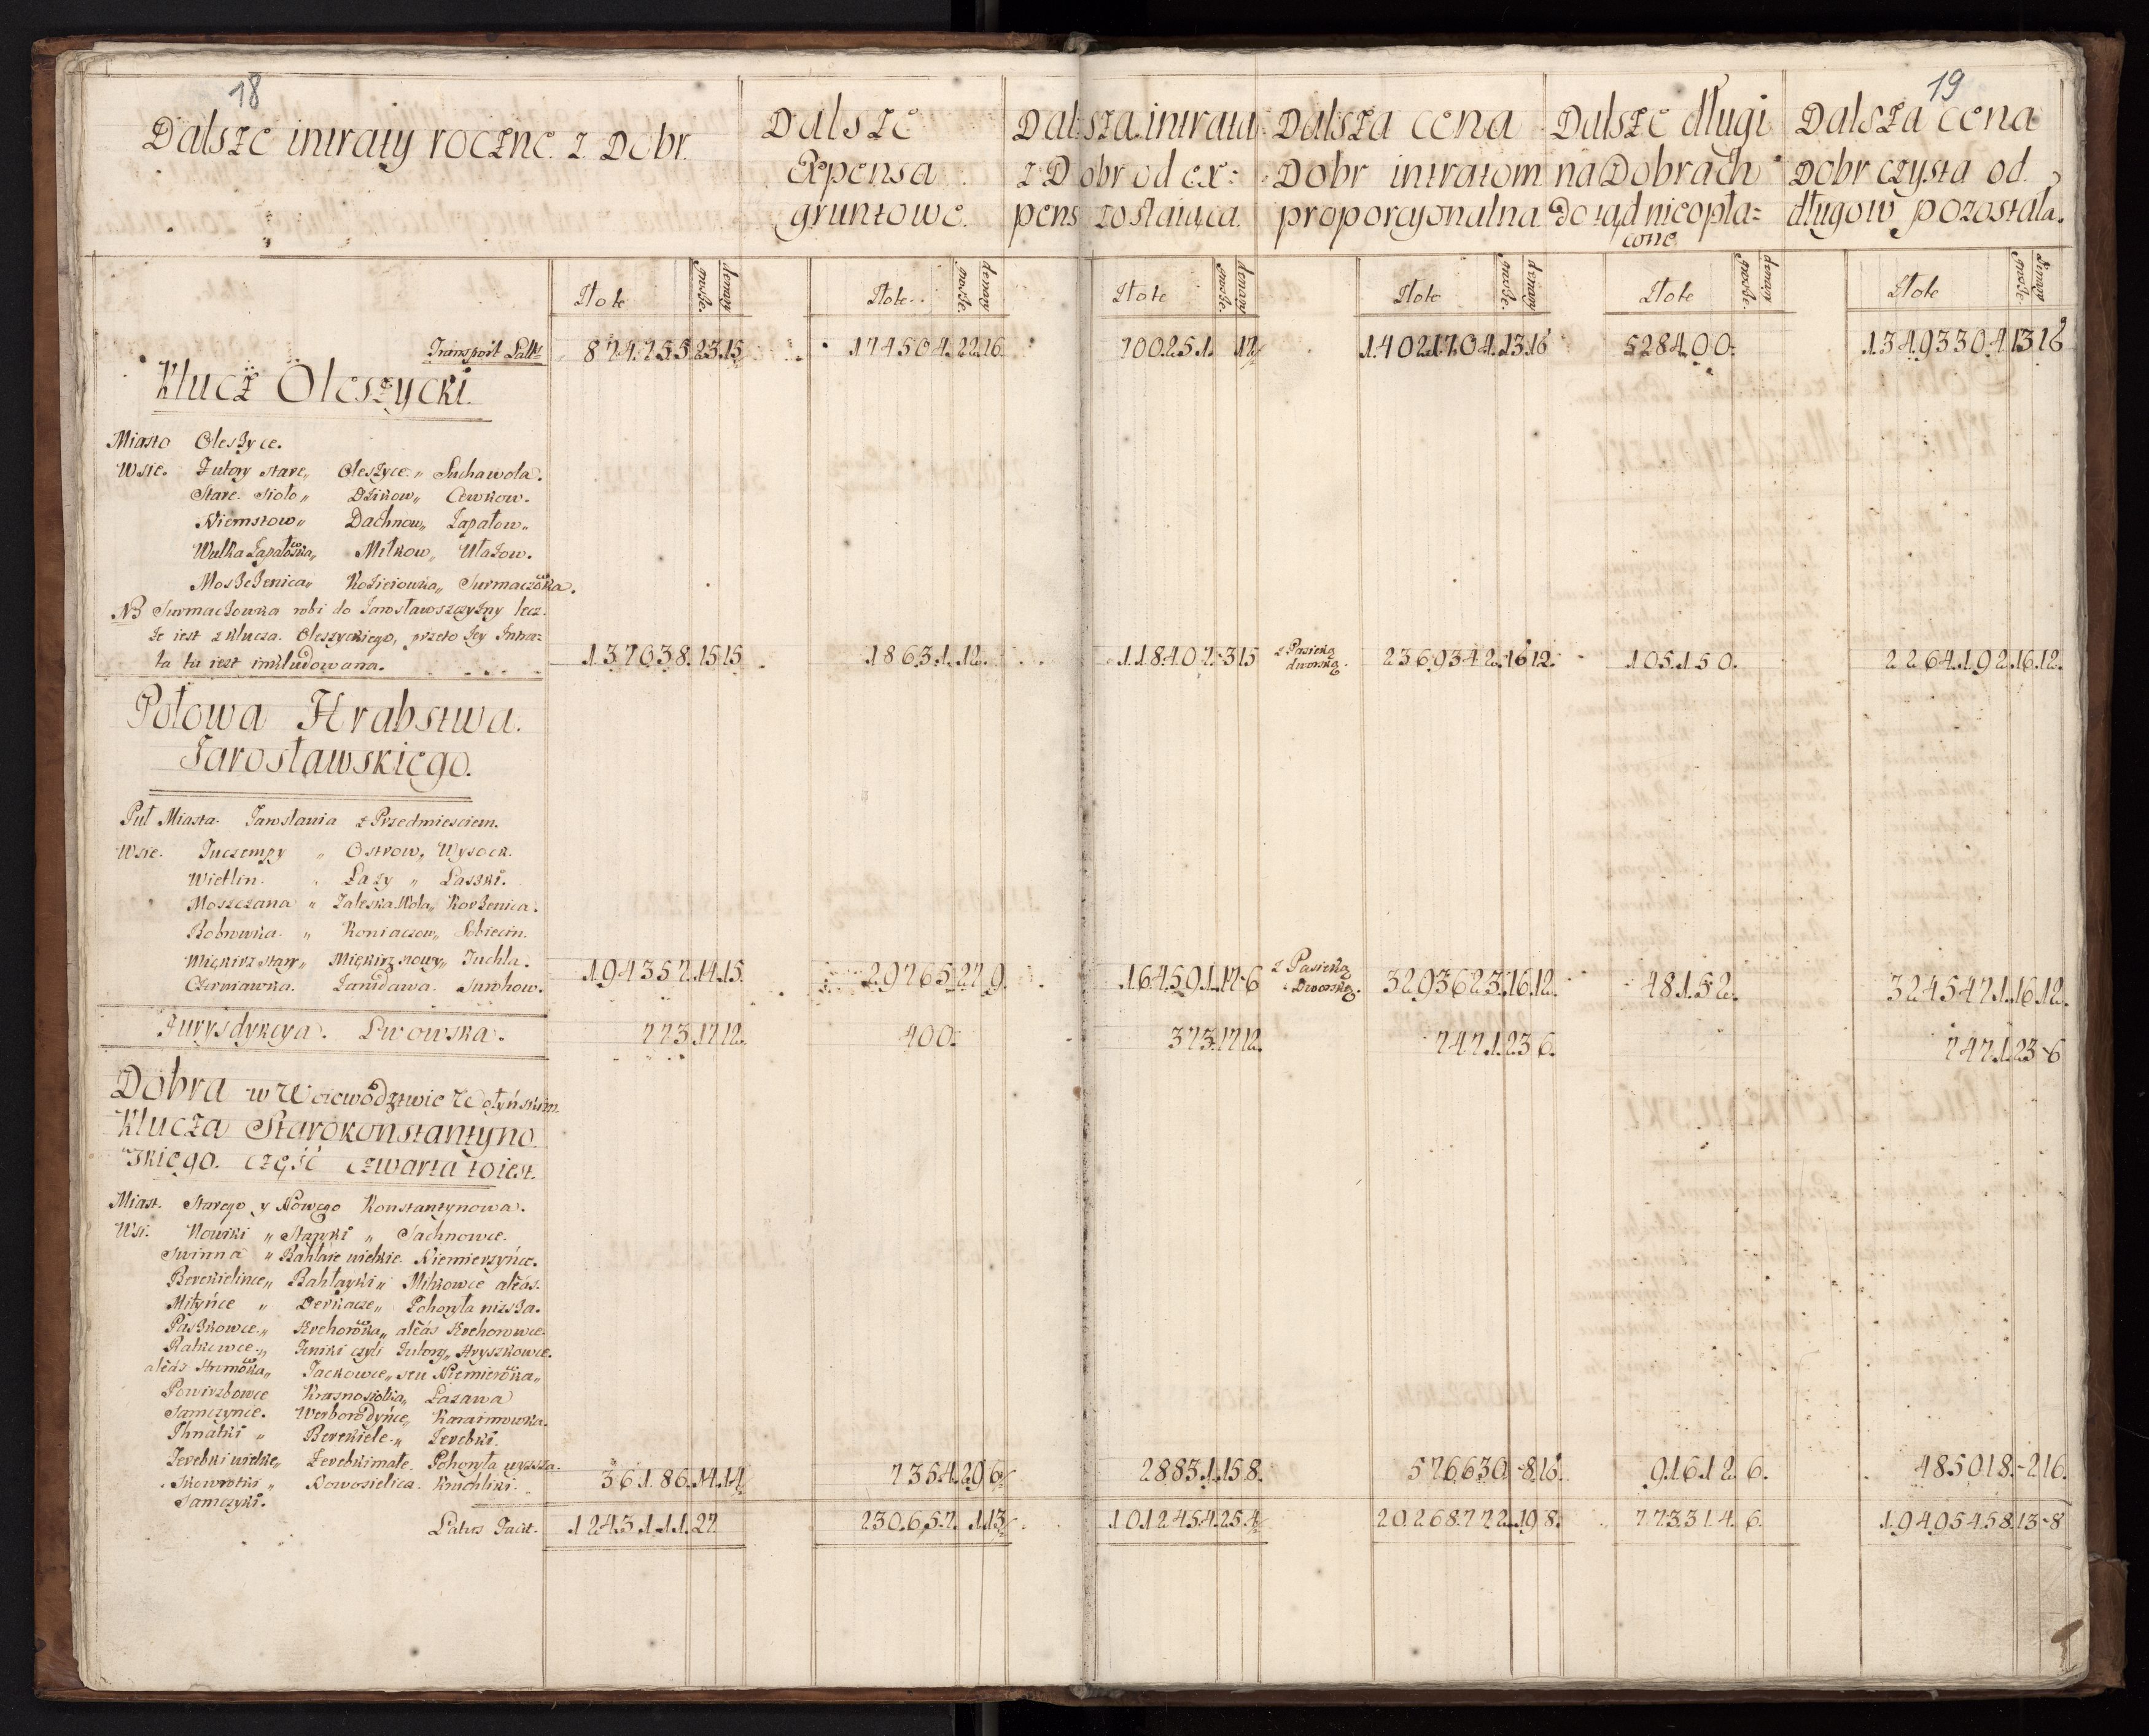 18
19
Dalsze intraty roczne z Dobr.
Dalsze
Expensa
gruntowe.
Dalsza intrata
z Dobr od ex:
pens zostaiąca.
Dalsza cena
Dobr intratom
proporcyonalna.
Dalsze długi
na Dobrach
do tąd nieopła=
cone
Dalsza cena
Dobr czysta od
długow pozostała.
Złote grosze. denary
Złote grosze. denary
Złote grosze. denary
Złote grosze. denary
Złote grosze. denary
Złote grosze. denary
Transport 874755.23.15 174504.22.16 700251. 17 14021704.13.16 528400. 13493304.13 16
Klucz Oleszycki.
Miasto Oleszyce.
Wsie. Futory stare, Oleszyce. „ Suchawola.
Stare. Sioło „ Dzikow „ Cewkow.
Niemstow „ Dachnow „ Łapałow „
Wulka Łapałowka „ Miłkow „ Ułazow.
Moszczenica „ Koziejowka „ Surmaczowka.
NB Surmaczowka robi do Jarosławszczyzny lecz
że iest z klucza. Oleszyckiego, przeto Jey Intra=
ta tu iest inkludowana. 137038.15 15 18631.12. 118407.-3 15 z Pasieką dworską. 2369342.16 12. 105150. 2264192.16.12.
Połowa Hrabstwa.
Jarosławskiego.
Puł Miasta. Jarosławia z Przedmiesciem.
Wsie. Tuczempy „ Ostrow, Wysock.
Wietlin. „ Łazy „ Laszki.
Moszczana „ Zaleska Wola „ Korzenica.
Bobrowka. „ Koniaczow „ Sobiecin.
Miękisz stary „ Miękisz nowy „ Tuchla.
Czerniawka. Zawidawa. Surohow. 194357.14.15. 29765.27 9. 164591.17-6 z Pasieką Dworską. 3293623.16.12. 48152. 3245471.16.12.
Jurysdykcya. Lwowska. 773.17 12. 400. 373.17 12. 7471.23 6. 7471.23-6
Dobra w Woiewodztwie Wołyńskim
Klucza Starokonstantyno
wskiego. część czwarta to iest.
Miast. Starego y Nowego Konstantynowa.
Wsi. Nowiki „ Stawki „ Sachnowce.
Swinna „ Bahlaie wielkie. Niemierzyńce.
Berekielince „ Bahłayki „ Miłkowce aleas.
Miłyńce „ Derkacze „ Pohoryła nizsza.
Paszkowce. „ Hrehorowka „ aleas Hrehorowce.
Ratkowce. „ Jenki czyli Futory „ Hryszkowce.
aleas Hrumowka „ Jackowce „ seu Niemierowka „
Powirzbowce Krasnosiołka, Łazawa
Samczynce. Werborodyńce „ Karaimowka.
Ihnatki „ Berekiele. „ Zerebki.
Zerebki wielkie „ Zerebki małe. Pohoryła wyzsza.
Skowrotki „ Nowosielica. Kruchliki. 36186.14.14 7354.29 6 28831.15 8. 576630-8.16. 91612 6. 485018.-2 16.
Samczyki.
Latus Facit. 1243111.27 230657. 1.13 1012454.25 4 20268772.19 8. 773314. 6. 19405458.13-8